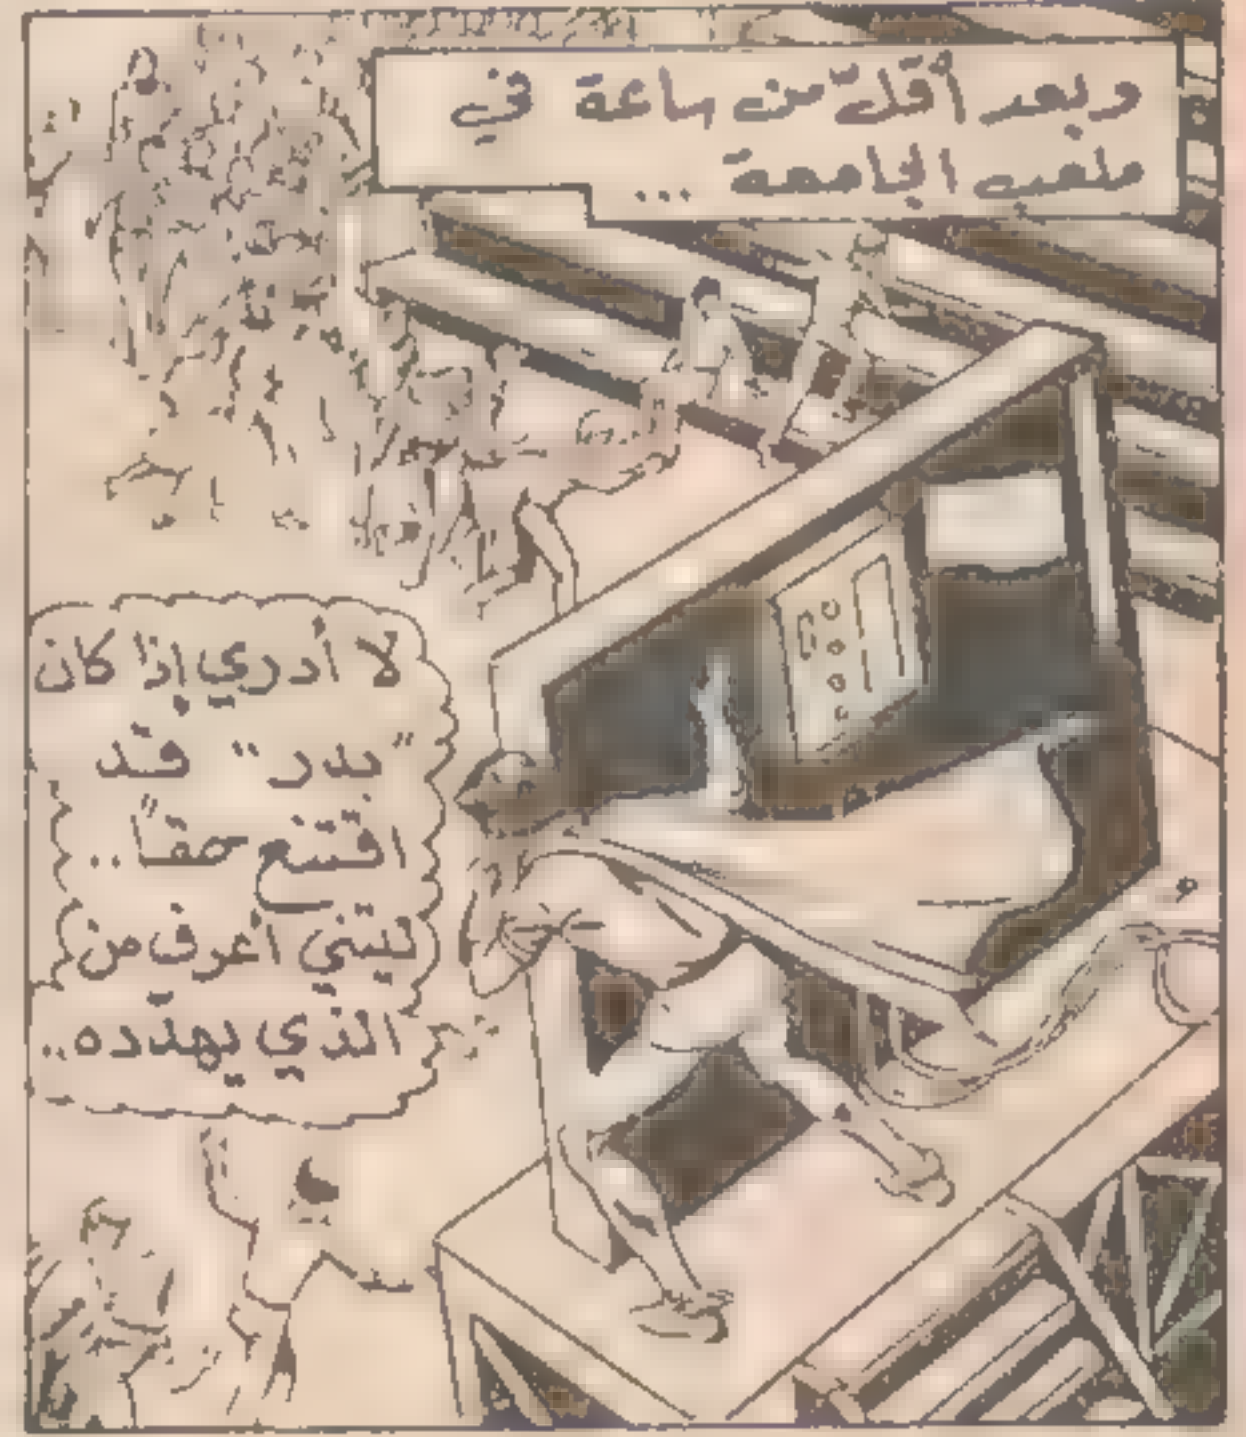 وبعد أقلّ من ساعة في
ملعب الجامعة ...
لا أدري إذا كان
"بدر" قد
اقتنع حقاً..
ليتني أعرف من
الذي يهدّده..